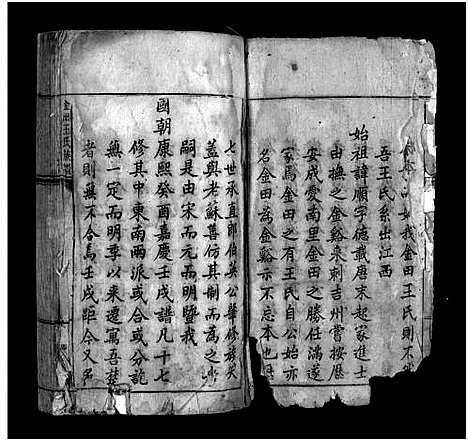 如我金田王氏則不
吾王氏系出江西
始祖諱順字德載唐末起家進士
由撫之金谿來刺吉州嘗按歷
安成愛南里金田之勝任滿遂
家焉金田之有王氏自公始亦
名金田為金谿示不忘本也
七世承直郎伯英公肇修族大
蓋與老蘇善仿其制而為之少
嗣是由宋而元而明暨我
國朝康熙癸酉嘉慶壬戌譜凡十七
修其中東南兩派或合或分訖
無一定而明季以來遷寓吾
者則無不合焉壬戌距今又多
金田王氏族譜